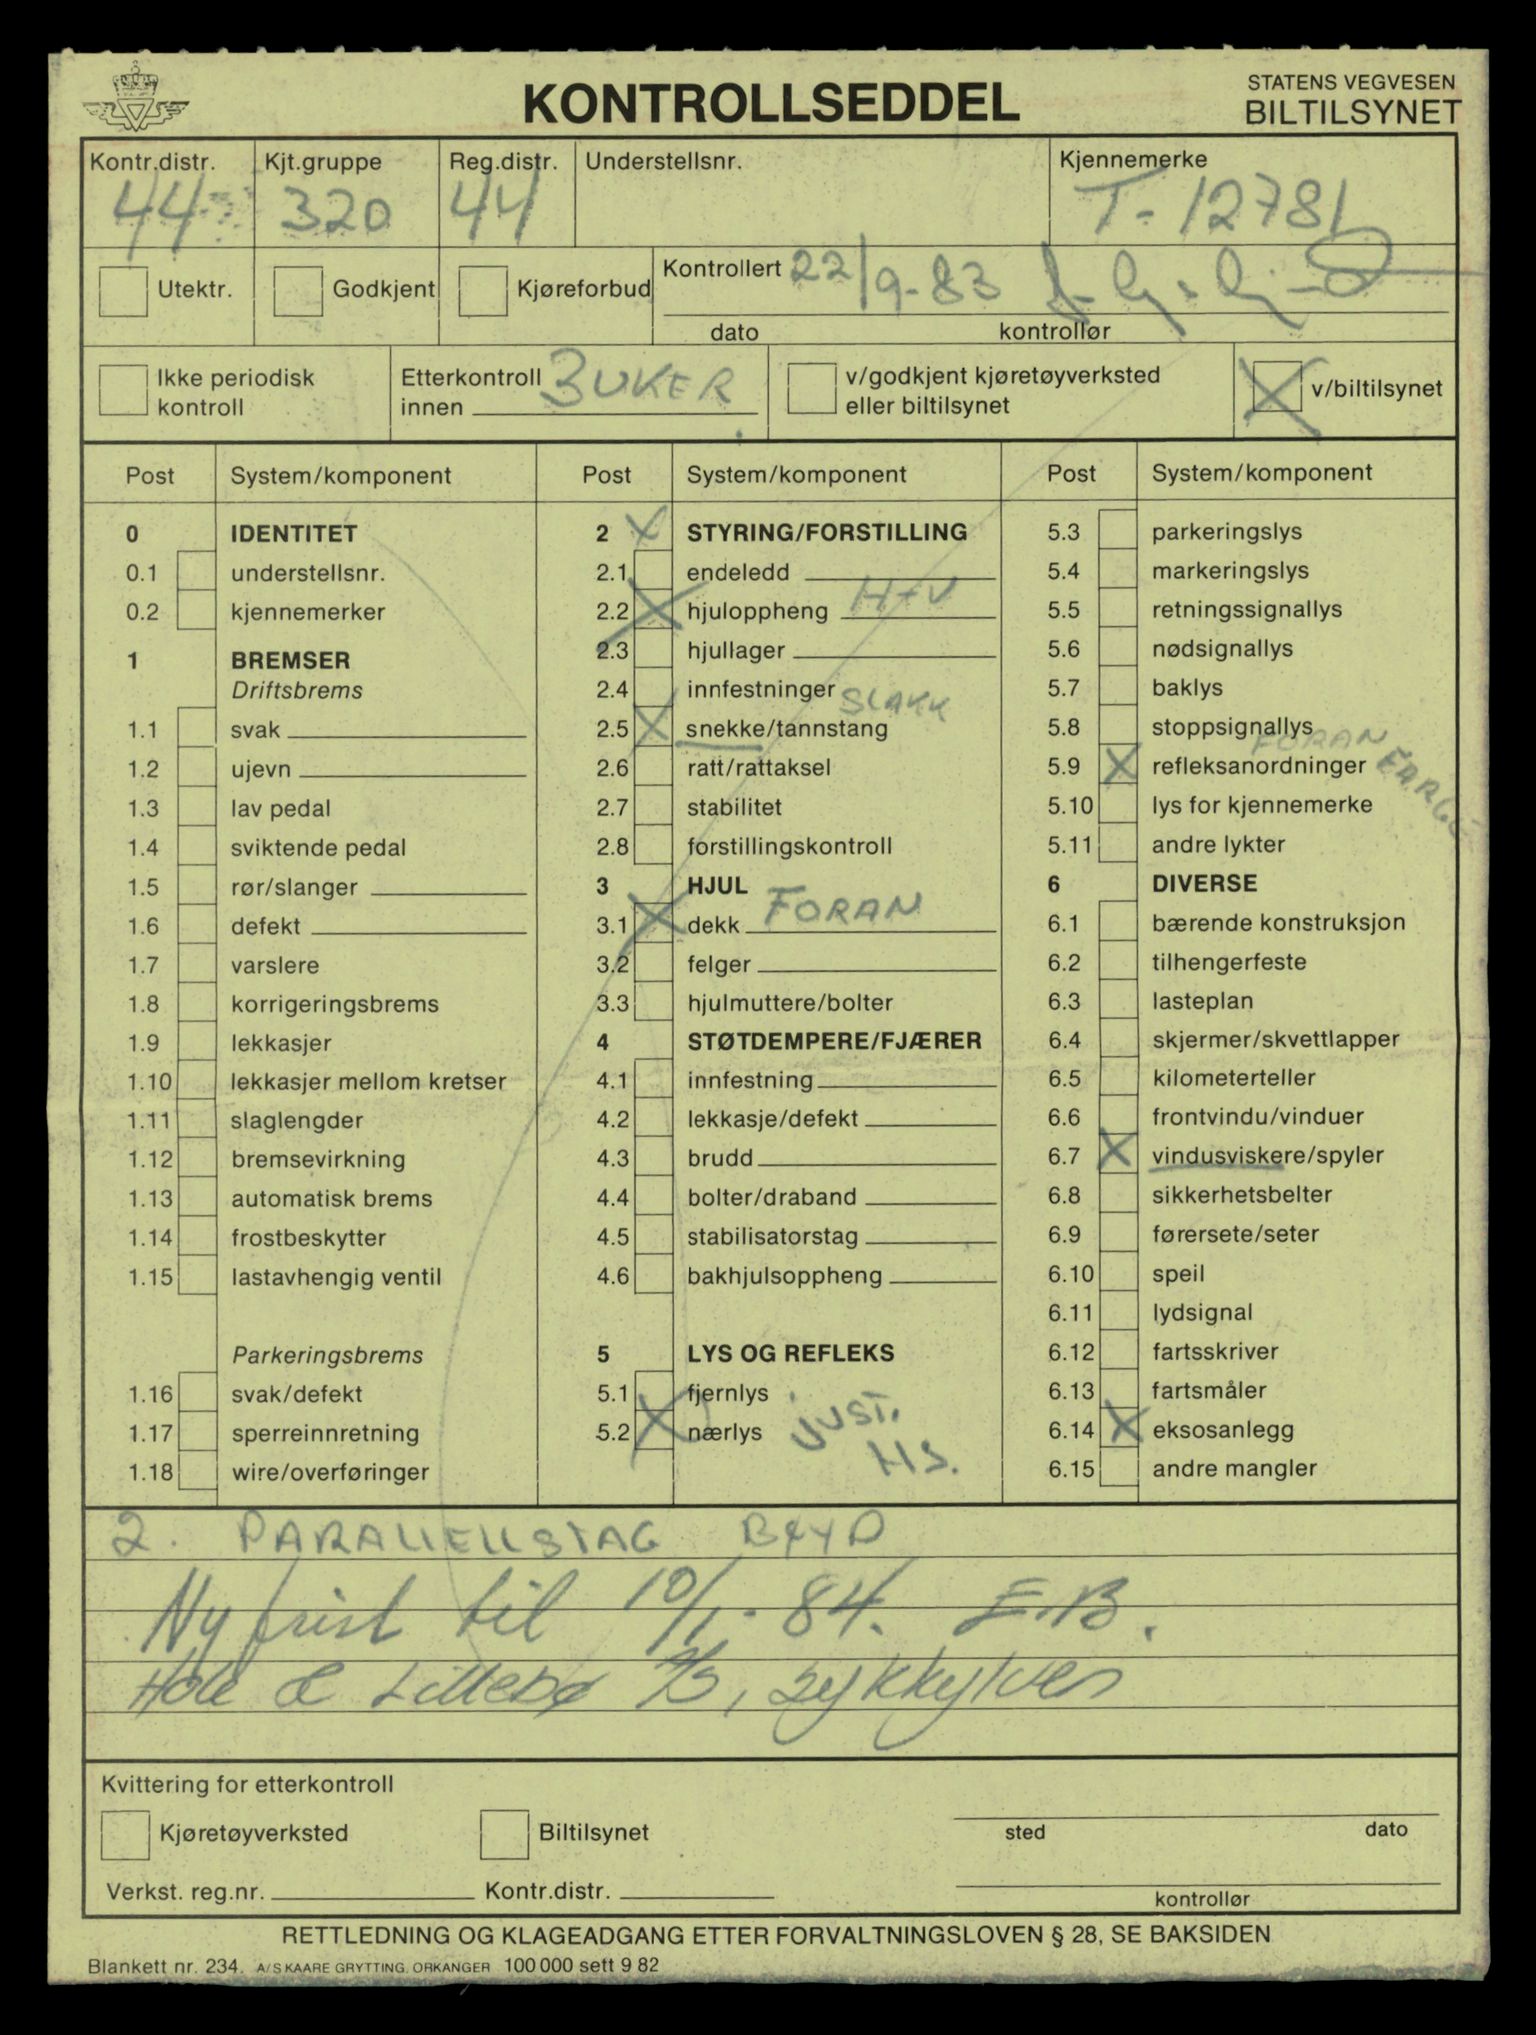 KONTROLLSEDDEL
STATENS VEGVESEN
BILTILSYNET
Kontr.distr. Kjt.gruppe Reg.distr. Understellsnr. Kjennemerke
44 320 44 T-12781
Utektr. Godkjent Kjøreforbud Kontrollert 22/9-83
dato kontrollør
Ikke periodisk kontroll
Etterkontroll innen 3 UKER
v/godkjent kjøretøyverksted eller biltilsynet
v/biltilsynet
Post System/komponent
0 IDENTITET
0.1 understellsnr.
0.2 kjennemerker
1 BREMSER
Driftsbrems
1.1 svak
1.2 ujevn
1.3 lav pedal
1.4 sviktende pedal
1.5 rør/slanger
1.6 defekt
1.7 varslere
1.8 korrigeringsbrems
1.9 lekkasjer
1.10 lekkasjer mellom kretser
1.11 slaglengder
1.12 bremsevirkning
1.13 automatisk brems
1.14 frostbeskytter
1.15 lastavhengig ventil
Parkeringsbrems
1.16 svak/defekt
1.17 sperreinnretning
1.18 wire/overføringer
Post System/komponent
2 X STYRING/FORSTILLING
2.1 endeledd
2.2 X hjuloppheng H+V
2.3 hjullager
2.4 innfestninger
2.5 X snekke/tannstang SLAKK
2.6 ratt/rattaksel
2.7 stabilitet
2.8 forstillingskontroll
3 HJUL
3.1 X dekk FORAN
3.2 felger
3.3 hjulmuttere/bolter
4 STØTDEMPERE/FJÆRER
4.1 innfestning
4.2 lekkasje/defekt
4.3 brudd
4.4 bolter/draband
4.5 stabilisatorstag
4.6 bakhjulsoppheng
5 LYS OG REFLEKS
5.1 fjernlys
5.2 X nærlys JUST.
HS.
Post System/komponent
5.3 parkeringslys
5.4 markeringslys
5.5 retningssignallys
5.6 nødsignallys
5.7 baklys
5.8 stoppsignallys
5.9 X refleksanordninger FORAN FARGE
5.10 lys for kjennemerke
5.11 andre lykter
6 DIVERSE
6.1 bærende konstruksjon
6.2 tilhengerfeste
6.3 lasteplan
6.4 skjermer/skvettlapper
6.5 kilometerteller
6.6 frontvindu/vinduer
6.7 X vindusviskere/spyler
6.8 sikkerhetsbelter
6.9 førersete/seter
6.10 speil
6.11 lydsignal
6.12 fartsskriver
6.13 fartsmåler
6.14 X eksosanlegg
6.15 andre mangler
2. PARALLELLSTAG BØYD
Ny frist til 10/1-84. E.B.
Hole & Lillebø A/S, Sykkylven
Kvittering for etterkontroll
Kjøretøyverksted Biltilsynet
sted dato
Verkst. reg.nr. Kontr.distr.
kontrollør
RETTLEDNING OG KLAGEADGANG ETTER FORVALTNINGSLOVEN § 28, SE BAKSIDEN
Blankett nr. 234. A/S KAARE GRYTTING. ORKANGER 100 000 sett 9 82